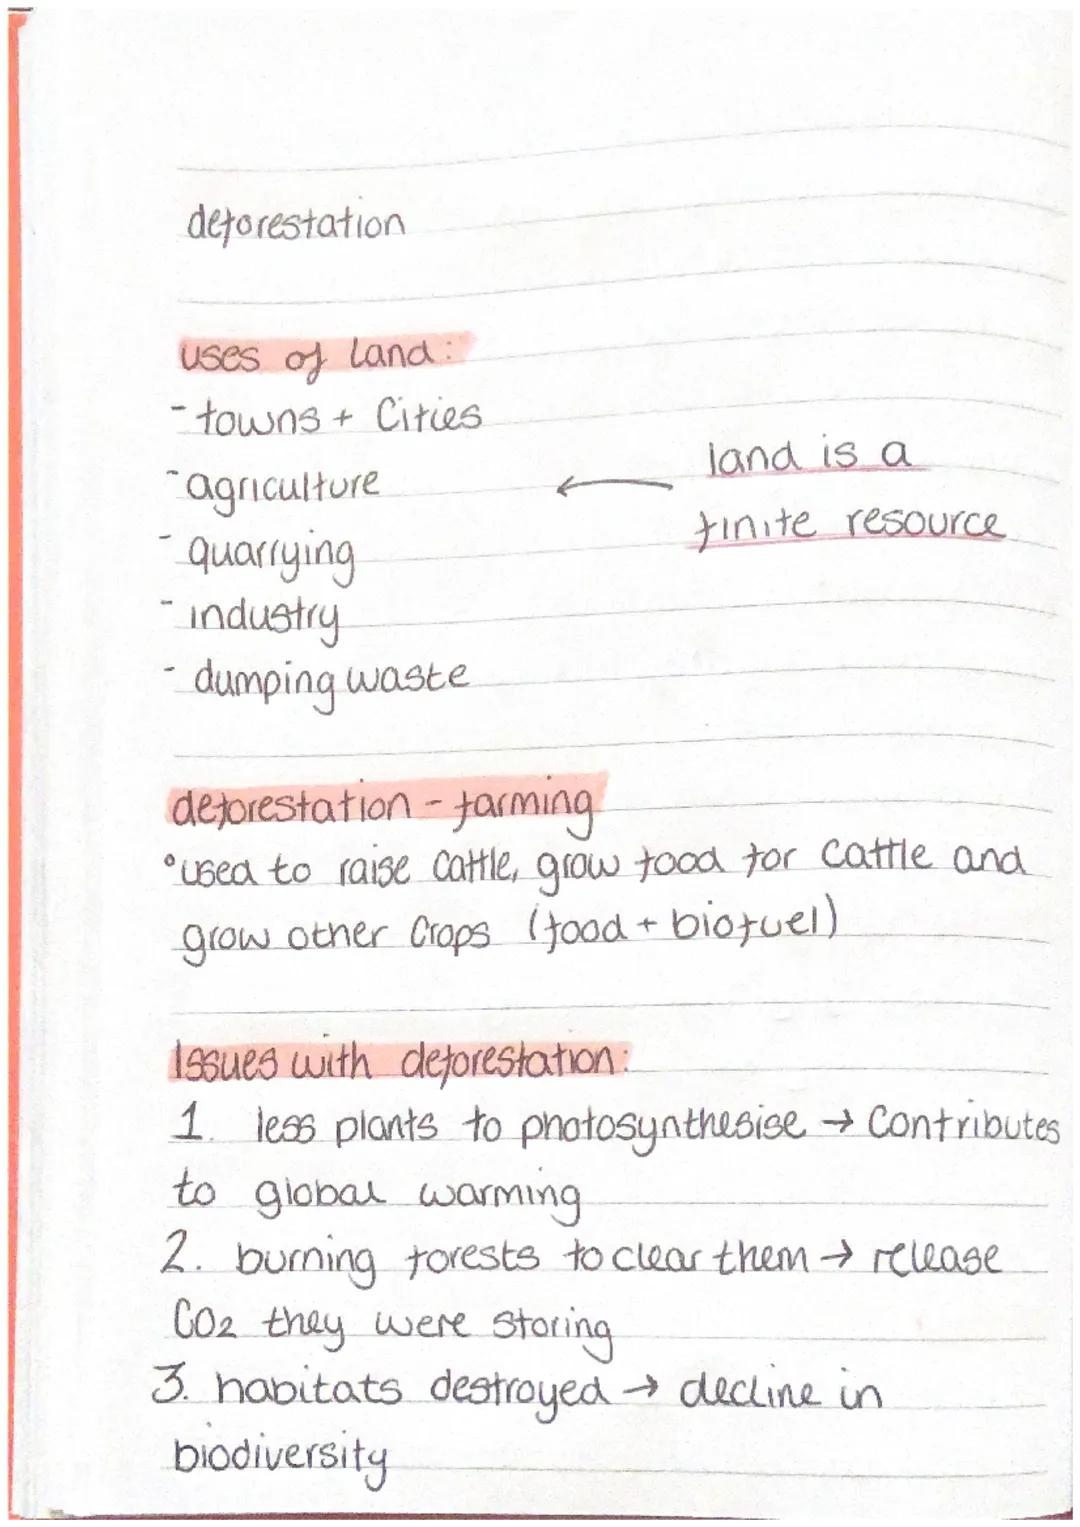 deforestation
uses of land:
- towns + Cities
- agriculture
land is a
finite resource
- quarrying
- industry
- dumping waste
deforestation - farming
• used to raise cattle, grow food for cattle and
grow other crops (food + biofuel)
Issues with deforestation:
1. less plants to photosynthesise → Contributes
to global warming
2. burning forests to clear them → release
CO2 they were storing
3. habitats destroyed → decline in
biodiversity